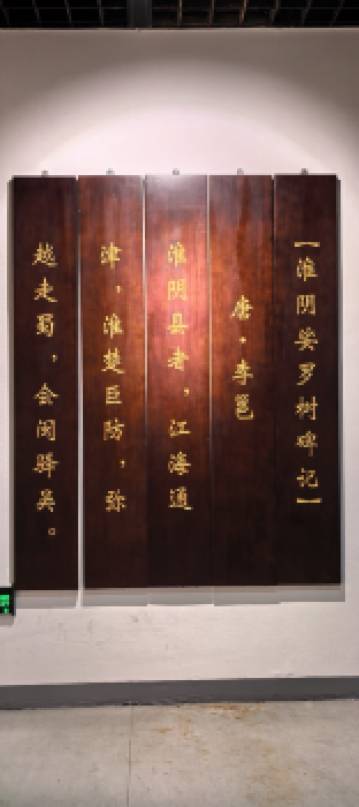 【淮阴娑罗树碑记】
唐·李邕
淮阴县者，江海通
津，淮楚巨防，弥
越走蜀，会闽驿吴。